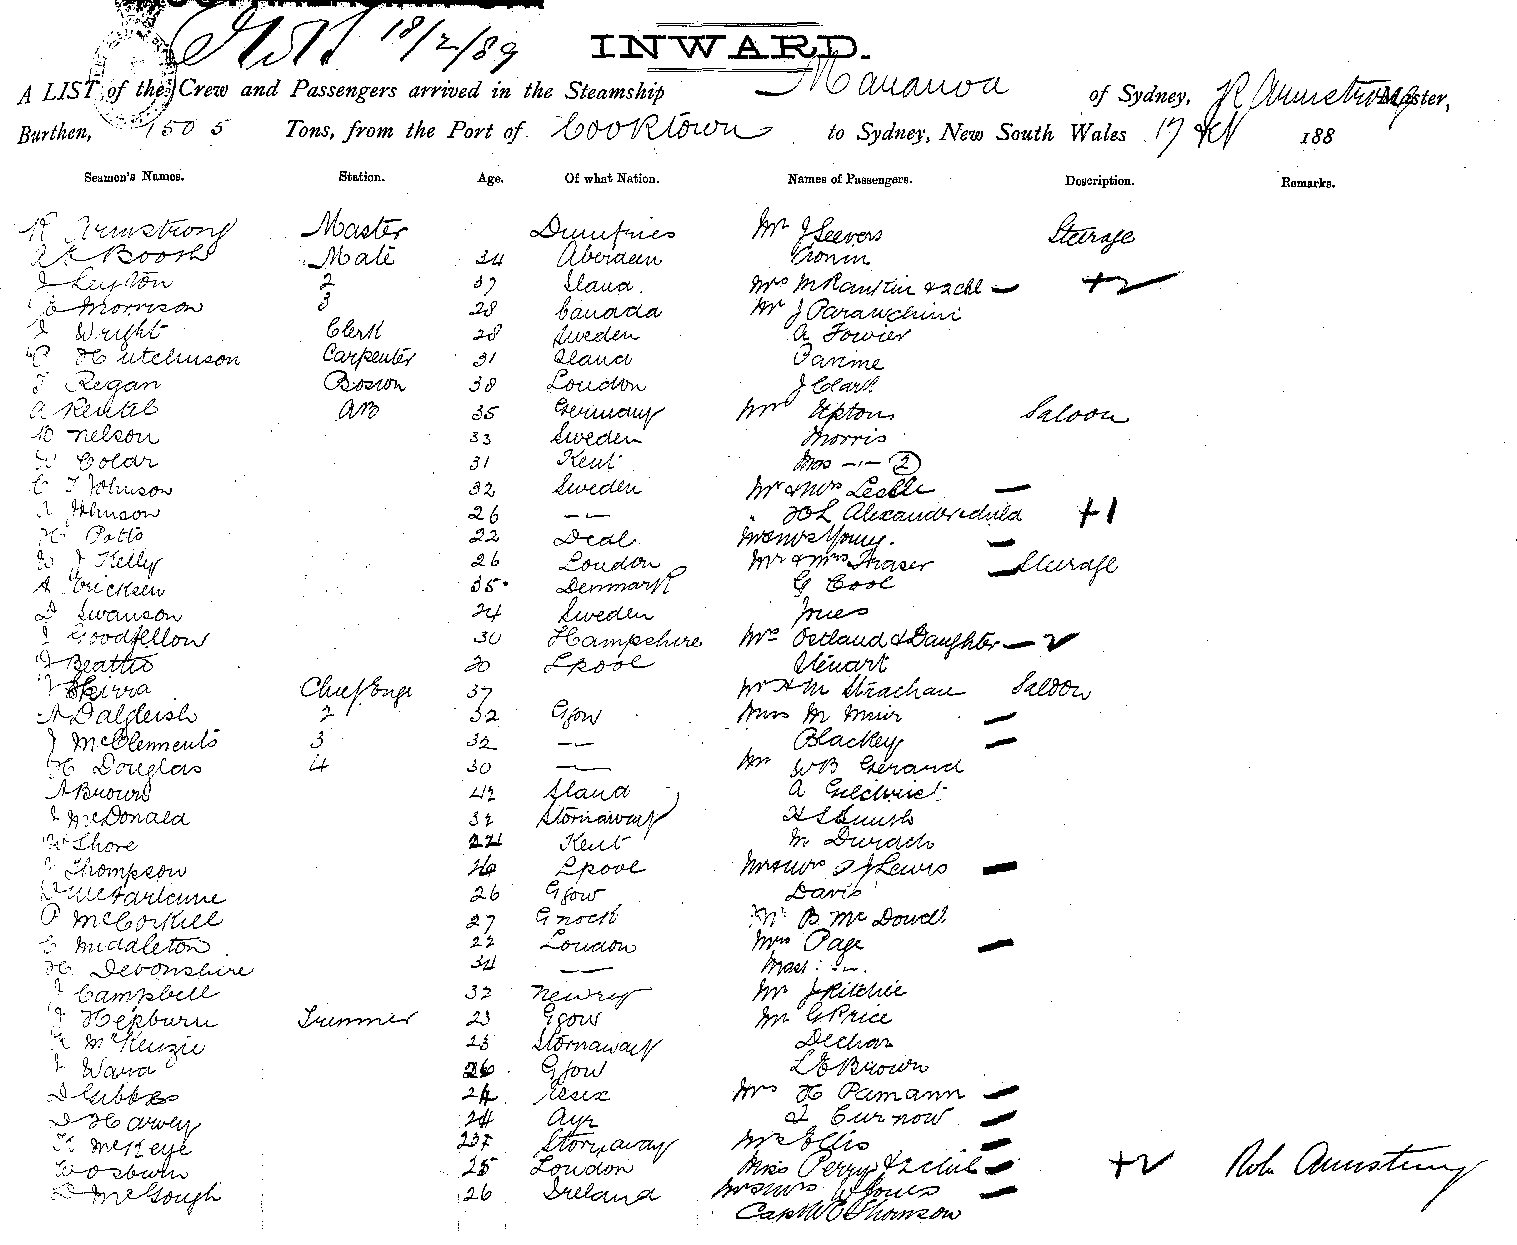 18/2/89
INWARD.
A LIST of the Crew and Passengers arrived in the Steamship Maranoa of Sydney, R Armstrong Master,
Burthen, 1505 Tons, from the Port of Cooktown to Sydney, New South Wales 17 188
Seamen's Names. Station. Age. Of what Nation. Names of Passengers. Description. Remarks.
R Armstrong Master Dumfries Mr J Seevers Steerage
Booth Mate 34 Aberdeen Cronin
J Leyton 2 37 Mrs McRankin & 2 chl — +2
Morrison 3 28 Canada Mr J
J Wright Clerk 28 Sweden A Fowier
Hutchinson Carpenter 31
T Regan Boson 38 London J Clark
A Rental AB 35 Germany Mr Upton Saloon
Nelson 33 Sweden Morris
W 31 Kent Mrs —"— 2
C T Johnson 32 Sweden Mr & Mrs Leslie —
A Johnson 26 —"— Alexander & child +1
H Potts 22 Deal Mr & Mrs Young. —
W J Kelly 26 London Mr & Mrs Fraser — Steerage
A Ericksen 35 Denmark G Cool
D Swanson 24 Sweden Jones
J Goodfellow 30 Hampshire Mrs Ostland & Daughter — 2
J Beattie 20 Lpool Stewart
Skirra Chief Engr 37 Mr H M Strachan Saloon
A Dalgleish 2 32 Ggow Miss M Muir —
J McClements 3 32 —"— Blackey —
H Douglas 4 30 —"— Mr W B Gerard
A Brown 42 A Gilchrist
J McDonald 32 Stornaway H S Smith
W Shore 22 Kent M Durach
J Thompson 26 Lpool Mr & Mrs S J Lewis —
McFarlane 26 Ggow Davis
P McCorkill 27 Gnock Mr B McDowell
C Middleton 22 London Mrs Page —
H Devonshire 34 —"— Mast —"—
J Campbell 32 Newrey Mr J Ritchie
J Hepburn Trimmer 23 Ggow Mr G Price
McKenzie 25 Stornaway Dechar
J Warra 26 Ggow L E Brown
D Gibbs 24 Essex Mrs H Pamann —
D Harvey 24 Ayr J Curnow —
K McKeye 23 Stornaway Mrs Ellis —
W Osburn 25 London Miss Perry & 2 chil — +2 Rob Armstrong
D McGough 26 Ireland Mr & Mrs W Jones —
Capt W C Thomson